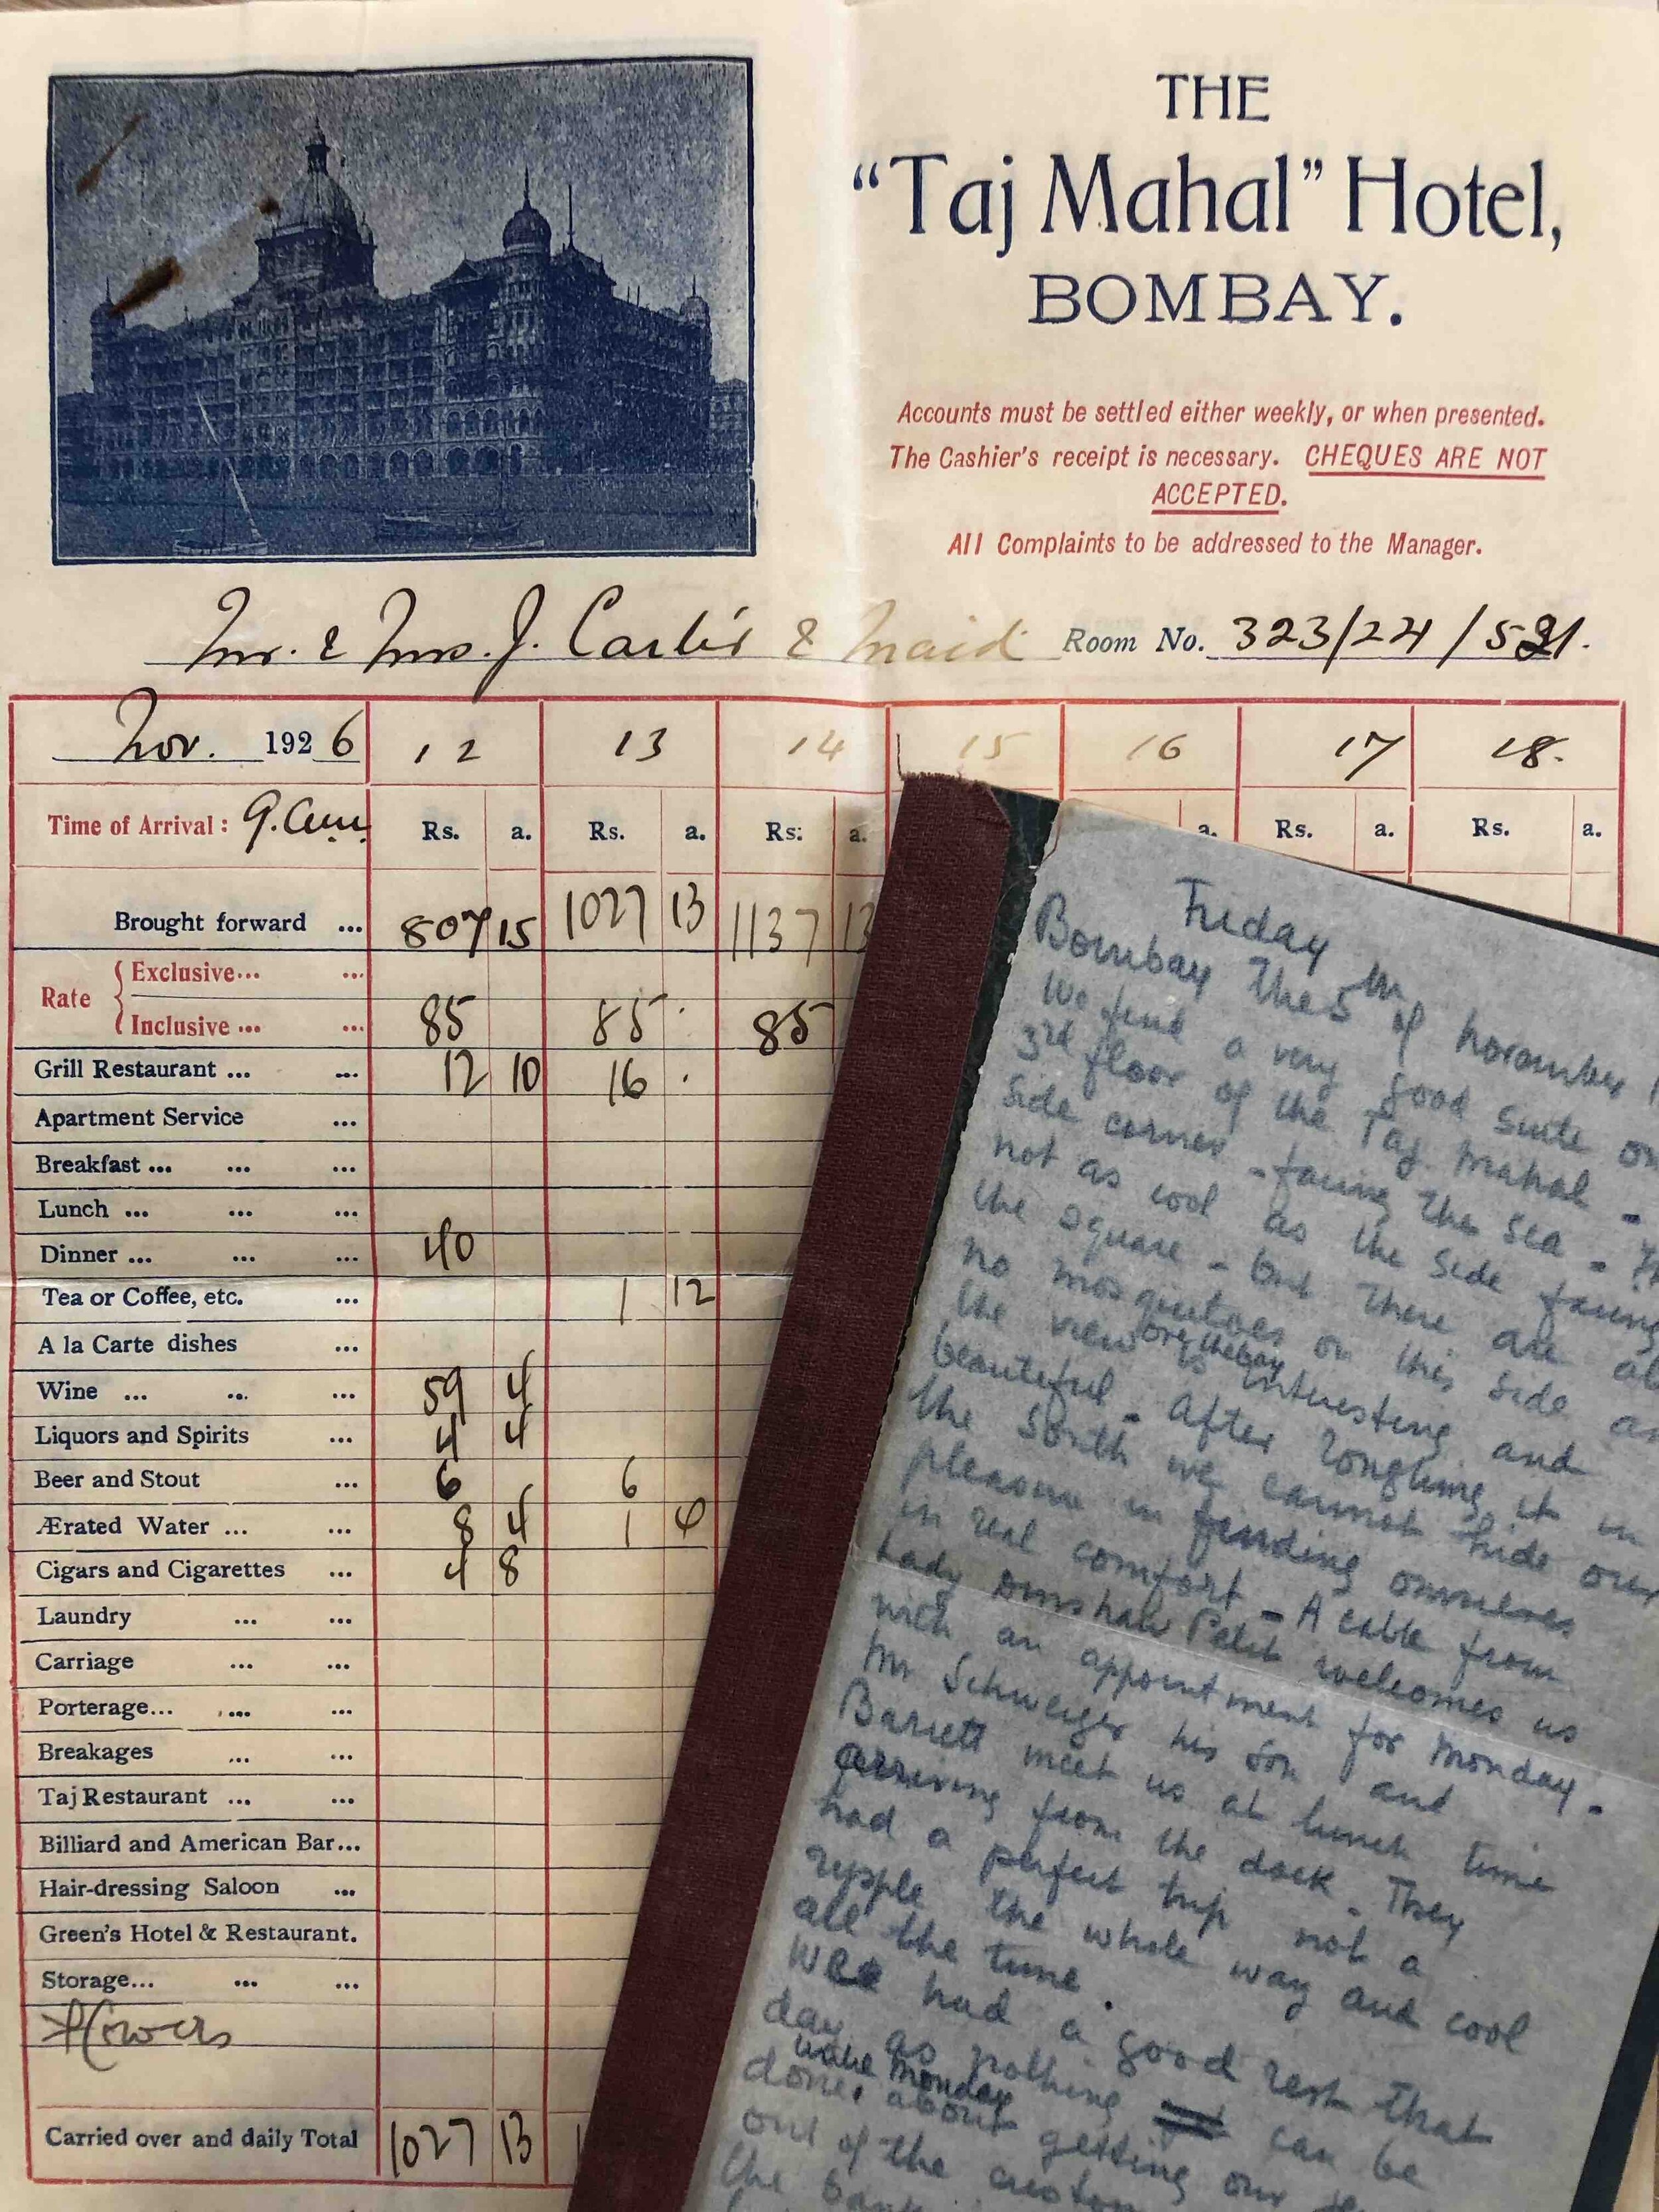 THE
“Taj Mahal” Hotel,
BOMBAY.
Accounts must be settled either weekly, or when presented.
The Cashier's receipt is necessary. CHEQUES ARE NOT
ACCEPTED.
All Complaints to be addressed to the Manager.
Mr. & Mrs. J. Cartier & Maid Room No. 323/24 / 521.
Nov. 1926 12 13 14 15 16 17 18.
Time of Arrival: 9. a.m. Rs. a. Rs. a. Rs: a. a. Rs. a. Rs. a.
Brought forward ... 807 15 1027 13 1137 13
Rate Exclusive... ...
Inclusive ... ... 85 85 85
Grill Restaurant ... ... 12 10 16 .
Apartment Service ...
Breakfast ... ... ...
Lunch ... ... ...
Dinner ... ... ... 40
Tea or Coffee, etc. ... 1 12
A la Carte dishes ...
Wine ... ... ... 59 4
Liquors and Spirits ... 4 4
Beer and Stout ... 6 6
Ærated Water ... ... 8 4 1
Cigars and Cigarettes ... 4 8
Laundry ... ...
Carriage ... ...
Porterage... ... ...
Breakages ... ...
Taj Restaurant ... ...
Billiard and American Bar...
Hair-dressing Saloon ...
Green's Hotel & Restaurant.
Storage... ... ...
Flowers
Carried over and daily Total 1027 13 1
Friday
Bombay The 5th of november
We find a very good suite on
3rd floor of the Taj. Mahal -
side corner - facing the sea -
not as cool as the side facing
the square - but there are
no mosquitoes on this side
the view over the bay is interesting and
beautiful - After roughing it in
the South we cannot hide our
pleasure in finding ourselves
in real comfort - A cable from
Lady Dinshaw Petit welcomes us
with an appointment for Monday -
Mr Schweiger his son and
Barrett meet us at lunch time
arriving from the dock - They
had a perfect trip not a
rypple the whole way and cool
all the time .
We had a good rest that
day as nothing can be
done, until Monday about getting our
out of the
the bank